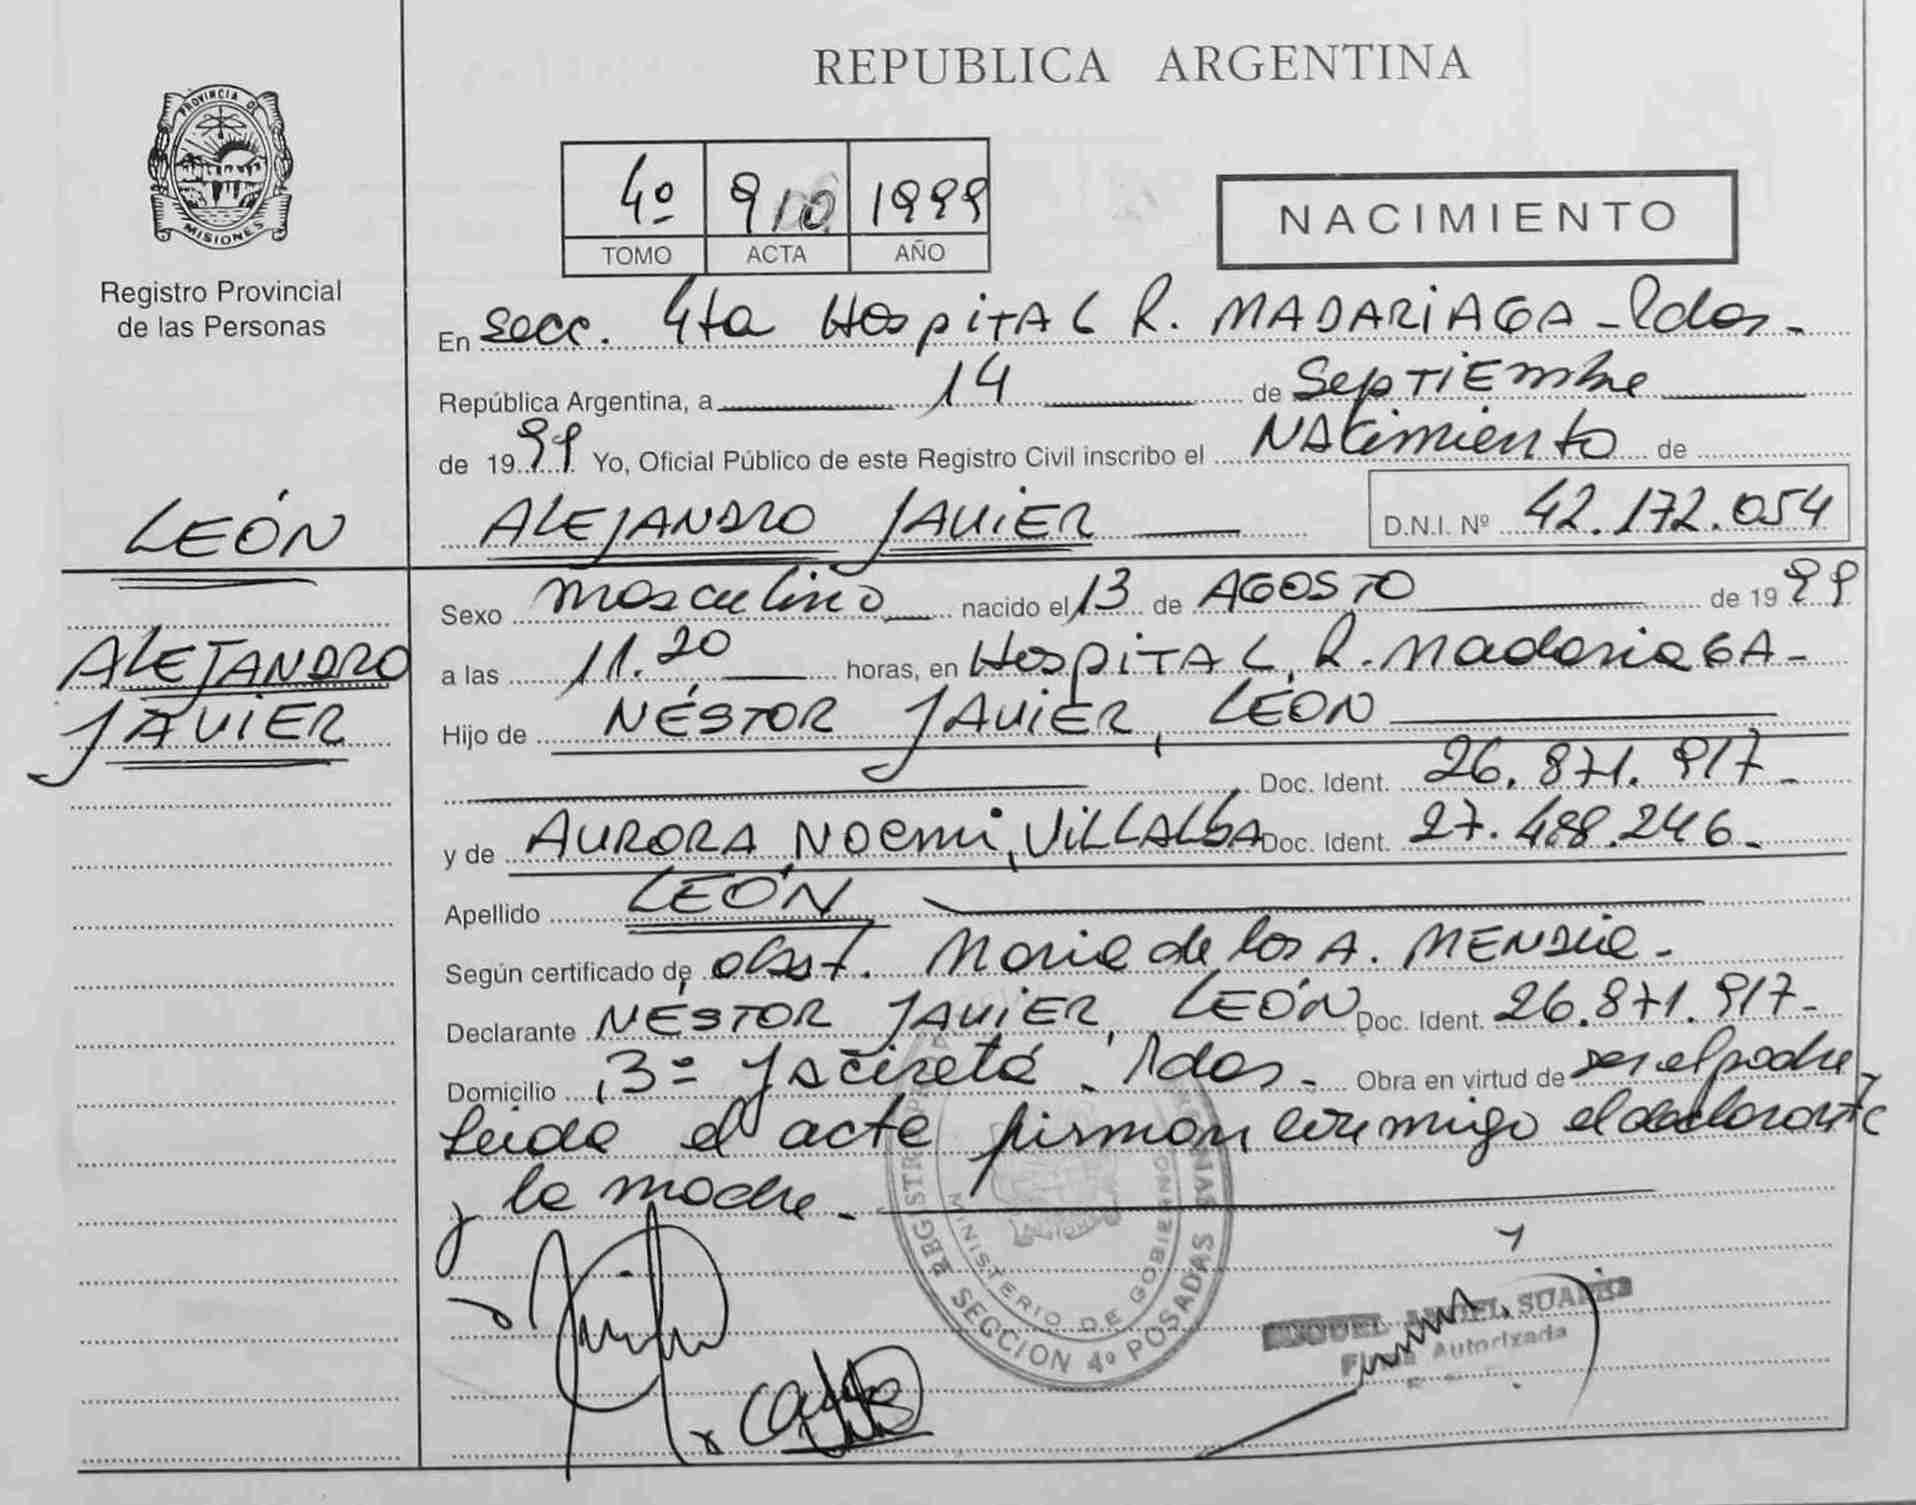 REPUBLICA ARGENTINA
PROVINCIA DE
MISIONES
Registro Provincial
de las Personas
4º 910 1999
TOMO ACTA AÑO
NACIMIENTO
En secc. 4ta Hospital R. MADARIAGA - Pdas -
República Argentina, a 14 de Septiembre
de 1999 Yo, Oficial Público de este Registro Civil inscribo el Nacimiento de
ALEJANDRO JAVIER D.N.I. Nº 42.172.054
LEÓN
ALEJANDRO
JAVIER
Sexo masculino nacido el 13 de AGOSTO de 1999
a las 11.20 horas, en Hospital R. Madariaga -
Hijo de NÉSTOR JAVIER, LEÓN
Doc. Ident. 26.871.917 -
y de AURORA NOEMI, VILLALBA Doc. Ident. 27.488.246 -
Apellido LEÓN
Según certificado de obst. Maria de los A. -
Declarante NÉSTOR JAVIER, LEÓN Doc. Ident. 26.871.917 -
Domicilio 3º Jaciretá . Pdas - Obra en virtud de ser el padre -
Leida el acta firman conmigo el declarante
y la madre -
MINISTERIO DE GOBIERNO
SECCION 4º POSADAS
MIGUEL ANGEL SUAREZ
Firma Autorizada